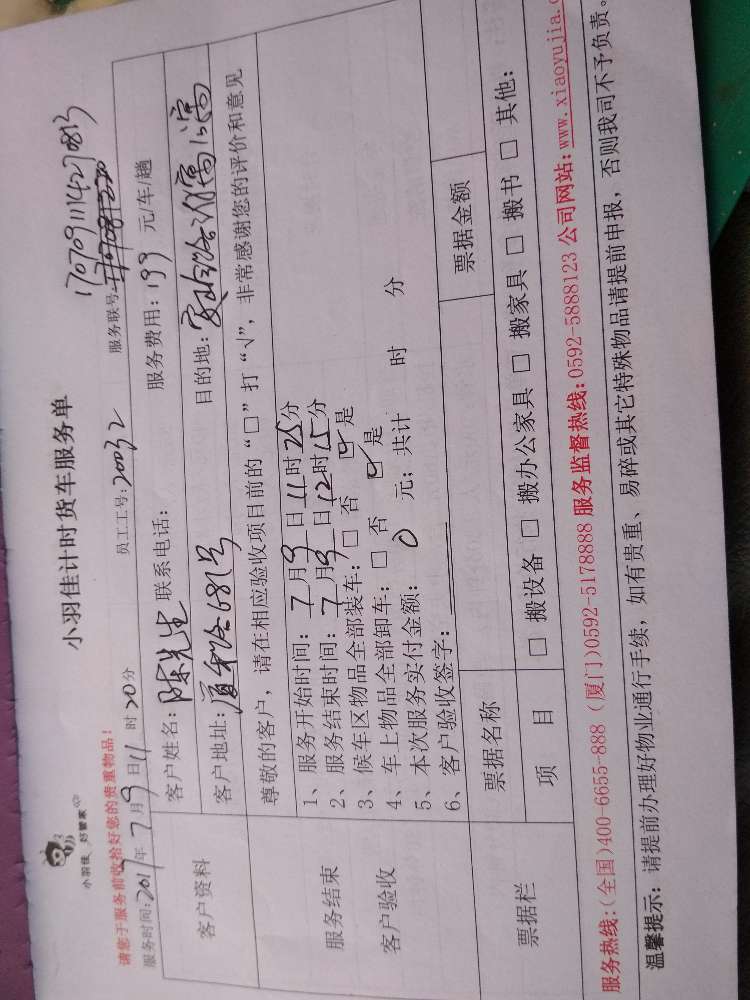 小羽佳 好管家
小羽佳计时货车服务单
请您于服务前收拾好您的贵重物品!
服务时间:201 年7月9日11时20分 员工工号:20032 服务联号:
客户资料
客户姓名:陈先生 联系电话: 服务费用:199 元/车/趟
客户地址:厦禾路681号 目的地:
服务结束
客户验收
尊敬的客户,请在相应验收项目前的“□”打“√”,非常感谢您的评价和意见
1、服务开始时间:7月9日11时25分
2、服务结束时间:7月9日12时15分
3、候车区物品全部装车:□ 否 ☑ 是
4、车上物品全部卸车:□ 否 ☑ 是
5、本次服务实付金额: 0 元;共计 时 分
6、客户验收签字:
票据栏
票据名称 票据金额
项 目 □ 搬设备 □ 搬办公家具 □ 搬家具 □ 搬书 □ 其他:
服务热线:(全国)400-6655-888 (厦门)0592-5178888 服务监督热线:0592-5888123 公司网站:www.xiaoyujia.c
温馨提示:请提前办理好物业通行手续,如有贵重、易碎或其它特殊物品请提前申报,否则我司不予负责。